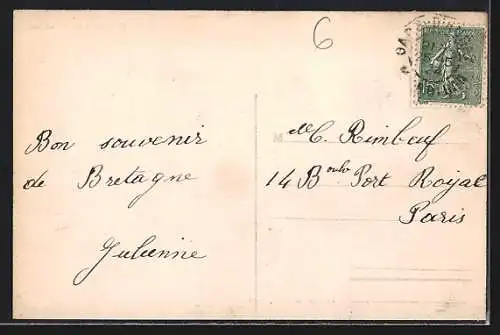 6
Bon souvenir
de Bretagne
Julienne
M elle C. Rimbeuf
14 B oulv Port Royal
Paris
15